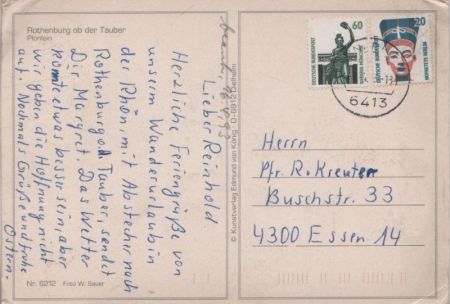 Rothenburg ob der Tauber
Plönlein
Lieber Reinhold
Herzliche Feriengrüße von
unserm Wanderurlaub in
der Rhön, mit Abstecher nach
Rothenburg o. Tauber, sendet
Dir Margret. Das Wetter
könnte etwas besser sein, aber
wir geben die Hoffnung nicht
auf. Nochmals Grüße und frohe
Ostern.
Nr. 6212 Foto W. Sauer
© Kunstverlag Edmund von König · D-6912 Dielheim
60
DEUTSCHE BUNDESPOST
BAVARIA MÜNCHEN
20
DEUTSCHE BUNDESPOST
NOFRETETE BERLIN
6413
Herrn
Pfr. R. Kreuter
Buschstr. 33
4300 Essen 14